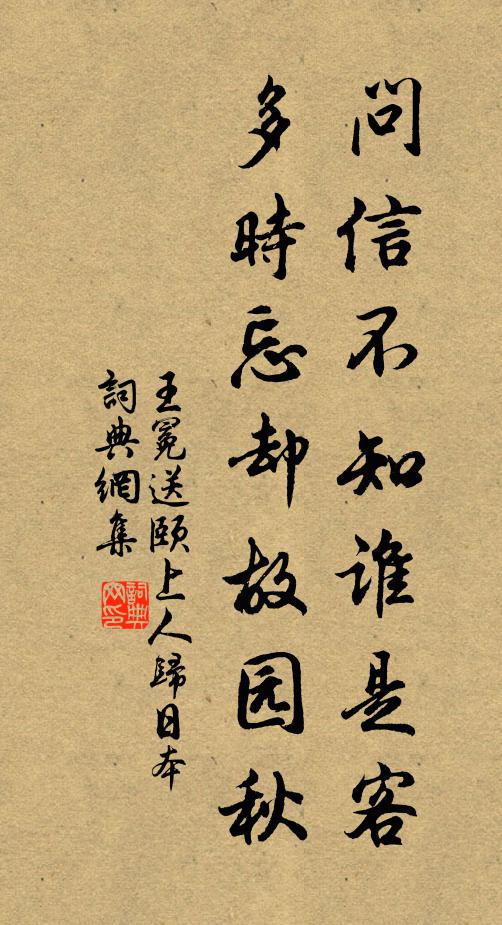 问信不知谁是客
多時忘却故园秋
王冕送頤上人歸日本
詞典網集
詞典网印